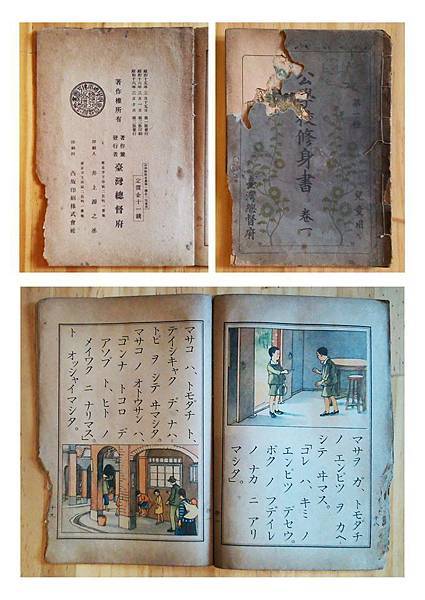 定價金十一錢
著作兼
發行者
臺灣總督府
著作權所有
印刷人 井上源之丞
印刷所 凸版印刷株式會社
兒童用
公學校修身書 卷一
臺灣總督府
マサヲ ガ、トモダチ
ノ エンピツ ヲ カヘ
シテ ヰマス。
「コレ ハ、キミ ノ
エンピツ デセウ。
ボク ノ フデイレ
ノ ナカ ニ アリ
マシタ」。
マサコ ハ、トモダチ ト、
テイシキャク デ、ナハ
トビ ヲ シテ ヰマシタ。
マサコ ノ オトウサン ハ、
「コンナ トコロ デ
アソブ ト、ヒト ノ
メイワク ニ ナリマス」
ト オッシャイマシタ。